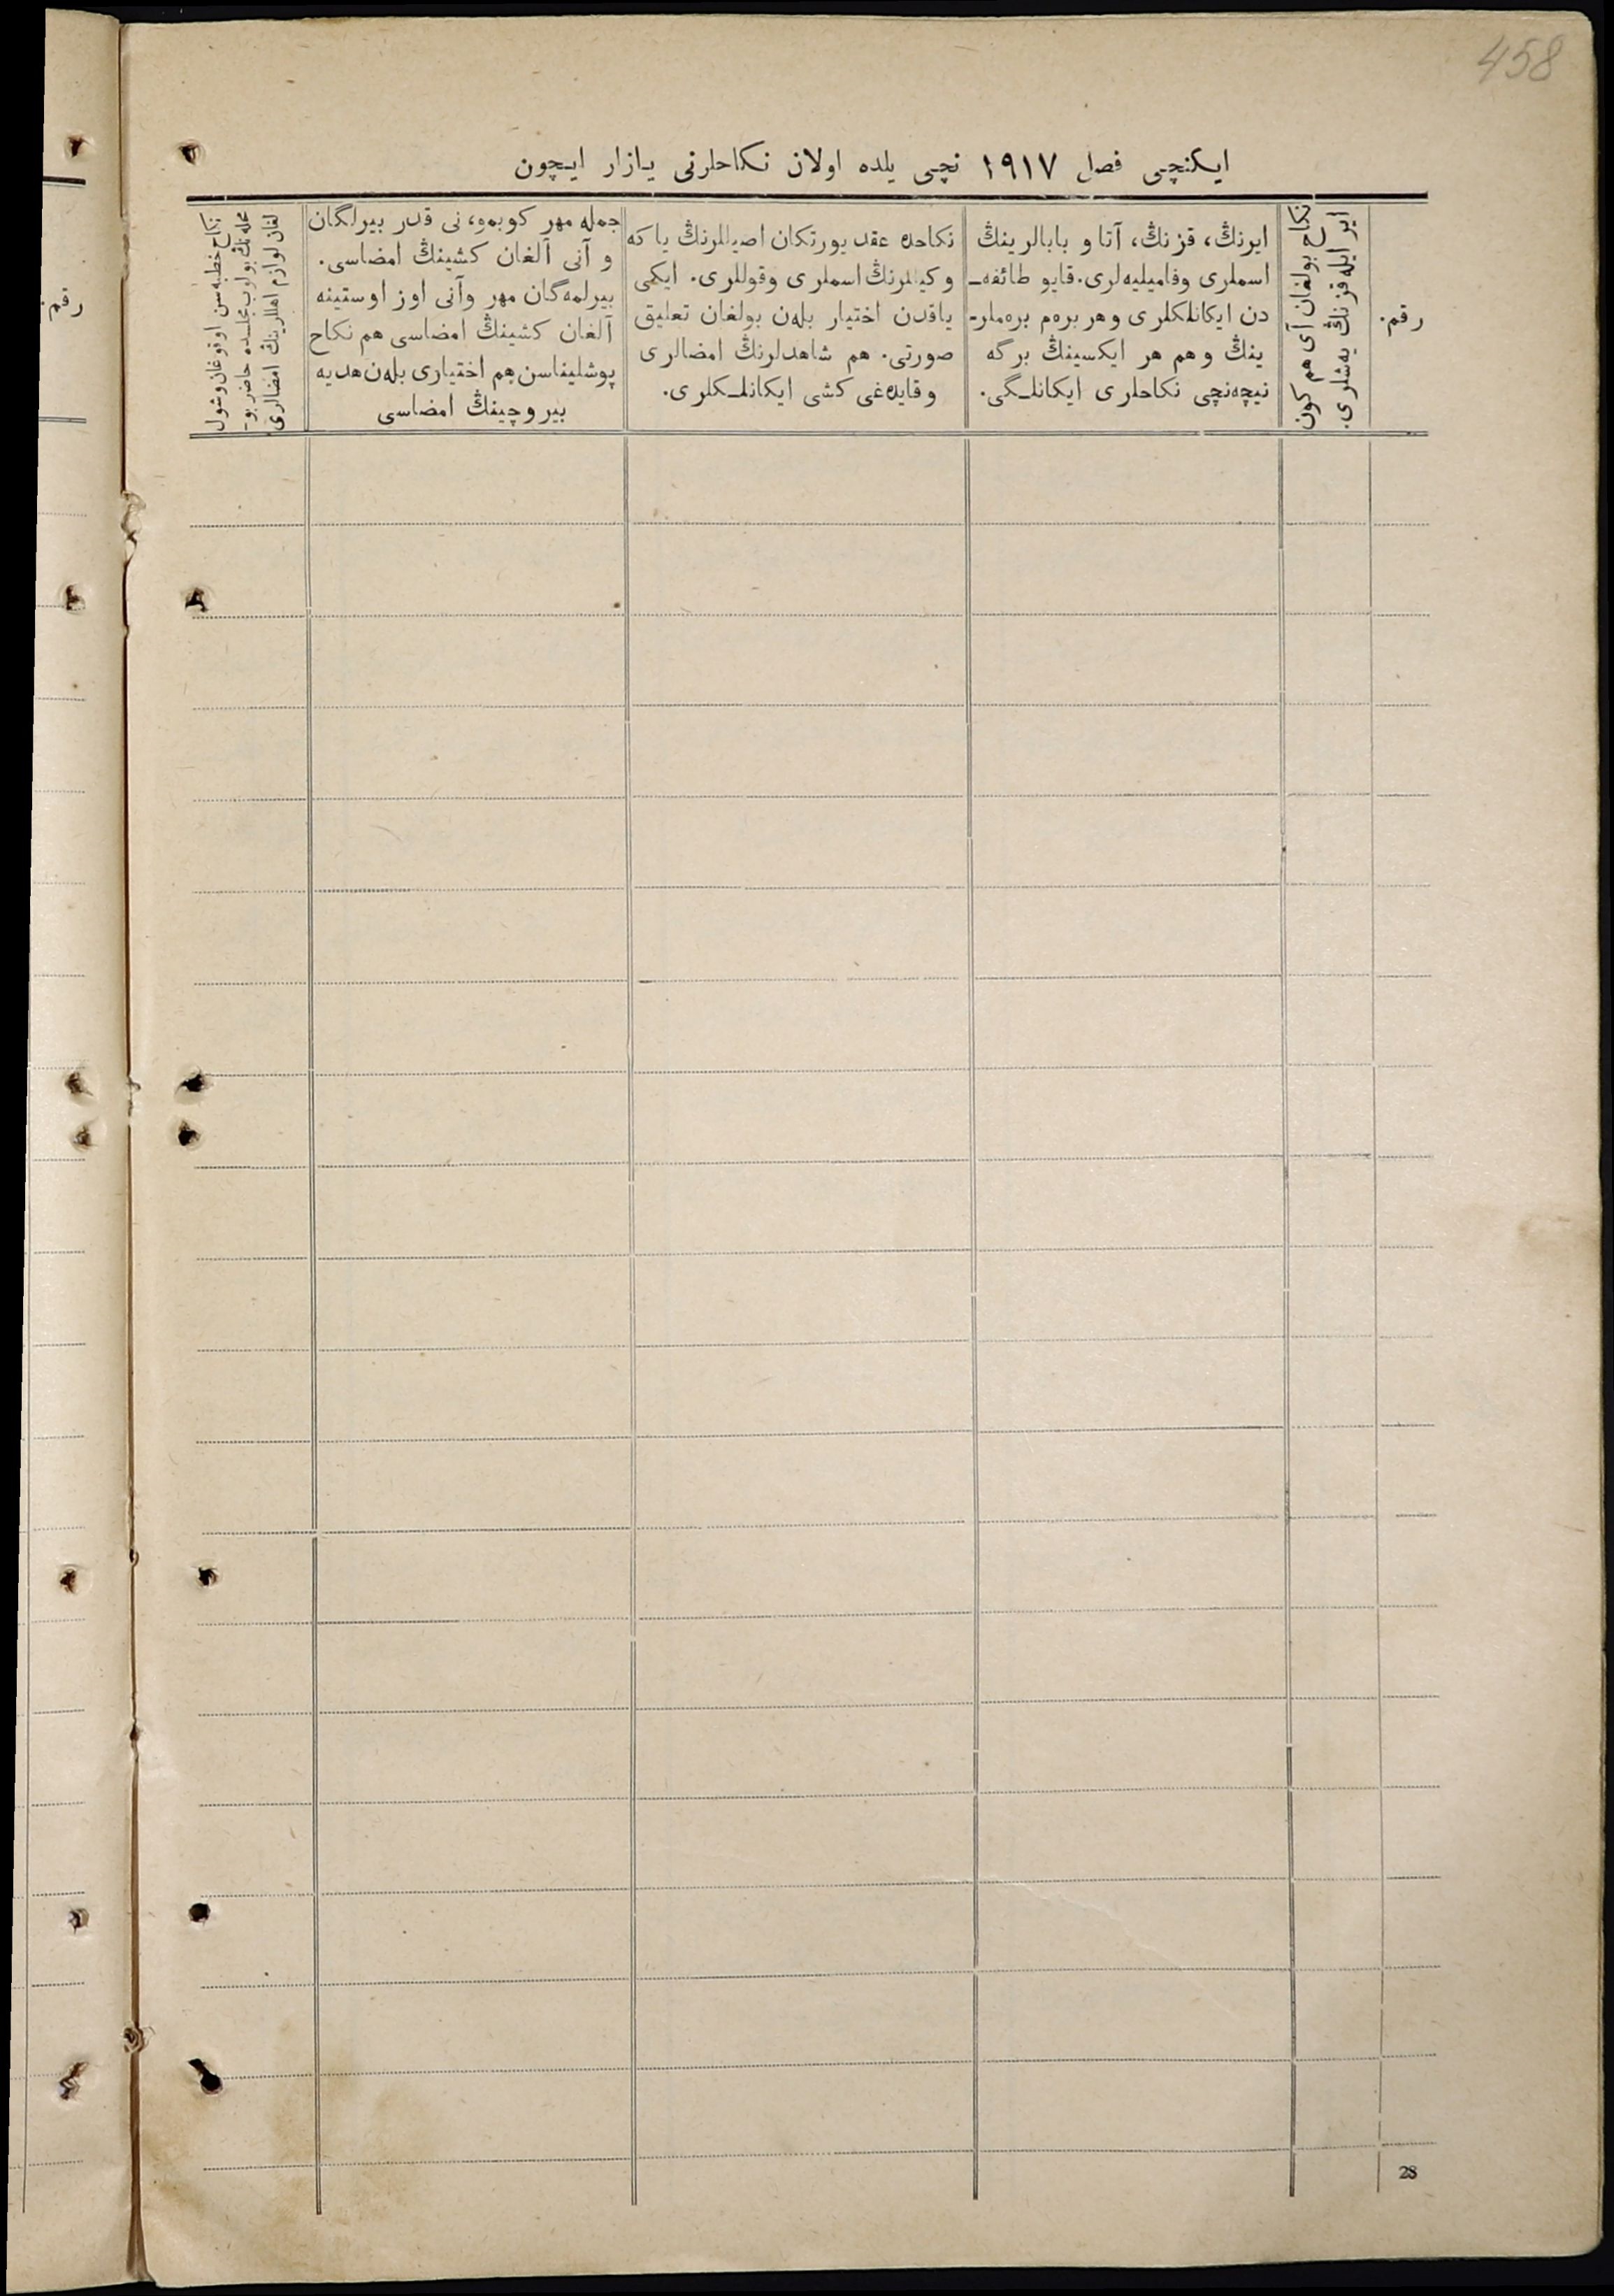 458
ایکنچی فصل ١٩١٧ نچی یلده اولان نکاحلرنی یازار ایچون
رقم.
نکاح بولغان آی هم کون
ایر ایله قزنڭ یه‌شلری.
ایرنڭ، قزنڭ، آتا و بابالرینڭ
اسملری وفامیلیه‌لری. قایو طائفه‌ـ
دن ایکانلکلری وهر بره‌م بره‌ملرـ
ینڭ وهم هر ایکسینڭ برگه
نیچه‌نچی نکاحلری ایکانلـگی.
نکاحده عقد یورتکان اصیللرنڭ یا که
وکیللرنڭ اسملری وقوللری. ایکی
یاقدن اختیار بله‌ن بولغان تعلیق
صورتی. هم شاهدلرنڭ امضالری
وقایده‌غی کشی ایکانلـکلری.
جمله مهر کوبمو، نی قدر بیرلگان
و آنی آلغان کشینڭ امضاسی.
بیرلمه‌گان مهر وآنی اوز اوستینه
آلغان کشینڭ امضاسی هم نکاح
پوشلیناسن هم اختیاری بله‌ن هدیه
بیروچینڭ امضاسی
نکاح خطبه‌سن اوقوغان وشول
محله‌نڭ بولوب مجلسده حاضر بوـ
لغان لوازم اهللرینڭ امضالری
رقم.
28